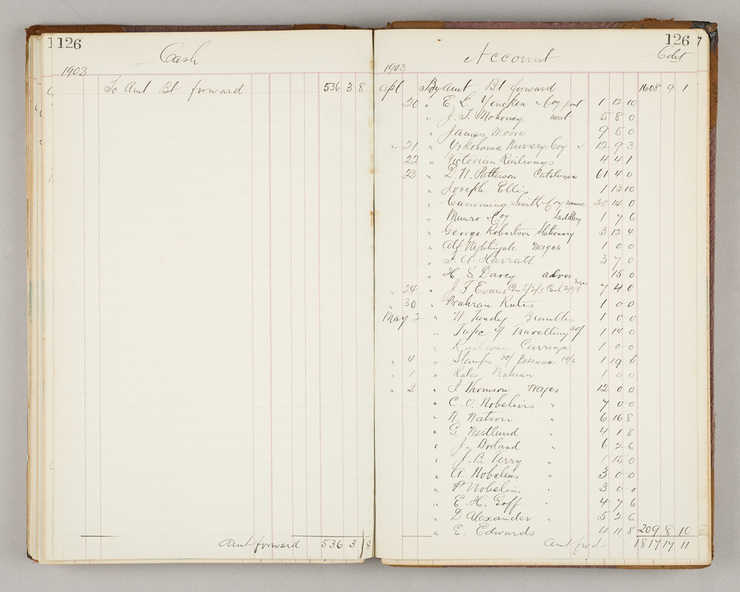 126
Cash
1903
To Amt Bt forward 536 3 8
Amt forward 536 3 8
126
Account
1903
April By Amt Bt forward 1608 9 1
20 " E. L. Yencken & Coy 1 12 10
" J. F. Mahoney 5 8 0
" James Moore 9 5 0
" 21 " Yokohama Nursery Coy 12 9 3
22 " Victorian Railways 4 4 1
23 " D. W. Patterson Catalogue 61 4 0
" Joseph Ellis 1 13 10
" Cumming Smith & Coy manure 30 14 0
" Munro & Coy Saddlery 1 7 6
" George Robertson Stationery 3 12 4
" Alf Nightingale Wages 1 0 0
" 3 7 0
" H. S. Davey 15 0
" 24 " J. F. Evans 7 4 0
" 30 " Prahran Rates 1 0 0
May 2 " 1 0 0
" Travelling 1 14 0
" Railway Carriage 1 0 0
" 4 " Stamps 1 19 6
" 1 " Rates Prahran 1 0 0
" 2 " F. Thomson Wages 12 0 0
" C. O. Nobelius " 7 0 0
" W. Watson " 6 16 8
" G. Westlund " 4 1 8
" J. Borland " 6 2 6
" J. B. Perry " 1 15 0
" A. Nobelius " 3 0 0
" P. Nobelius " 3 0 0
" E. H. Goff " 4 7 6
" D. Alexander " 5 2 6
" E. Edwards 4 11 8 209 8 10
Amt fwd 1817 17 11